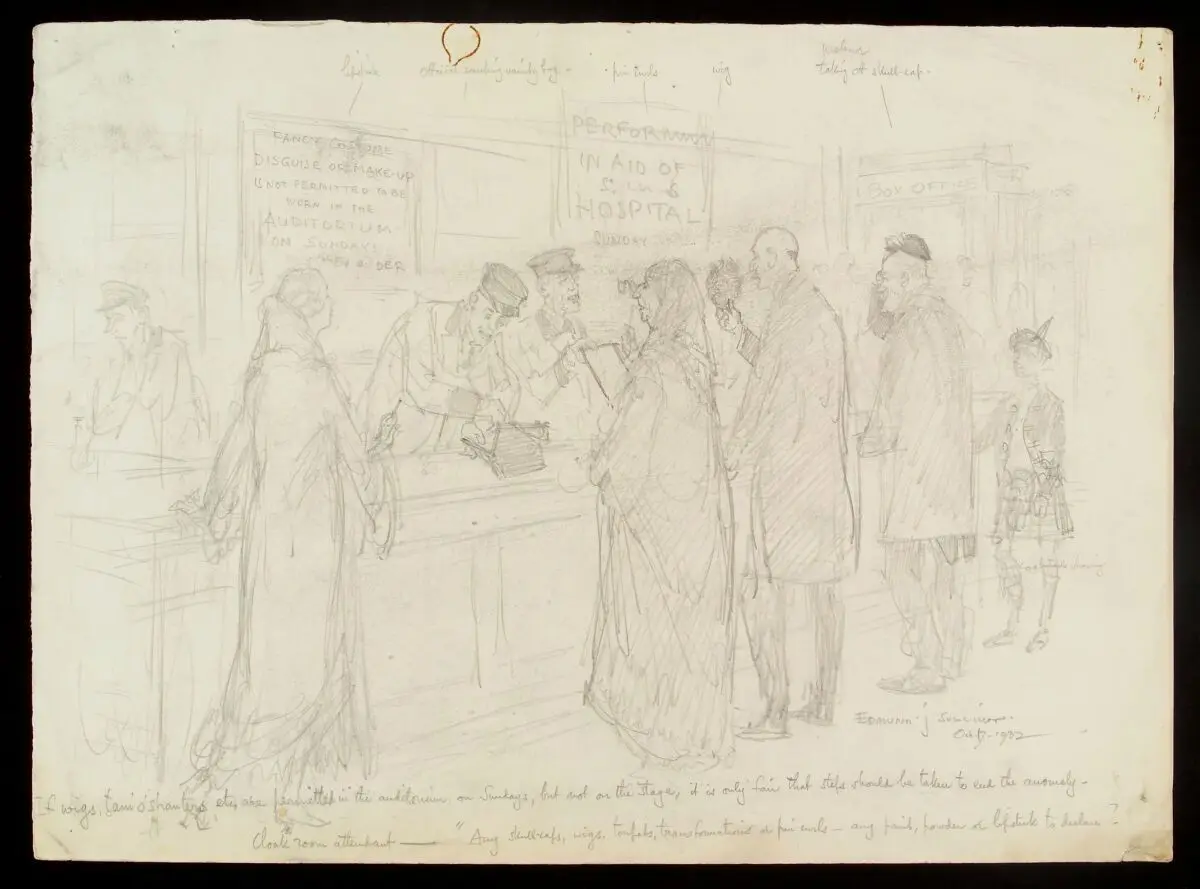 lipstick
official searching vanity bag -
pin curls
wig
taking off skull-cap -
FANCY COSTUME
DISGUISE OR MAKE-UP
IS NOT PERMITTED TO BE
WORN IN THE
AUDITORIUM
ON SUNDAY!
ORDER
PERFORMANCE
IN AID OF
HOSPITAL
SUNDAY
BOX OFFICE
showing
EDMUND · J SULLIVAN ·
Oct 1932
If wigs, tam o'shanters etc, are permitted in the auditorium on Sundays, but not on the stage, it is only fair that steps should be taken to end the anomaly -
Cloak room attendant — "Any skull-caps, wigs, toupets, transformations or pin curls - any paint, powder or lipstick to declare?